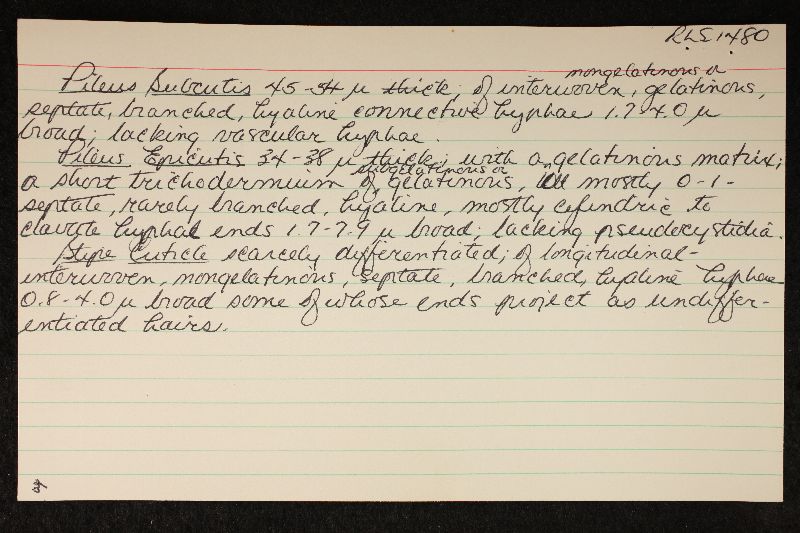 RLS 1480
nongelatinous or
Pileus Subcutis 45-54 µ thick; of interwoven, gelatinous,
septate, branched, hyaline connective hyphae 1.7-4.0 µ
broad; lacking vascular hyphae.
Pileus Epicutis 34-38 µ thick; with a gelatinous matrix;
subgelatinous or
a short trichodermium of gelatinous, mostly 0-1-
septate, rarely branched, hyaline, mostly cylindric to
clavate hyphal ends 1.7-7.9 µ broad; lacking pseudocystidia.
Stipe Cuticle scarcely differentiated; of longitudinal-
interwoven, nongelatinous, septate, branched, hyaline hyphae
0.8-4.0 µ broad some of whose ends project as undiffer-
entiated hairs.